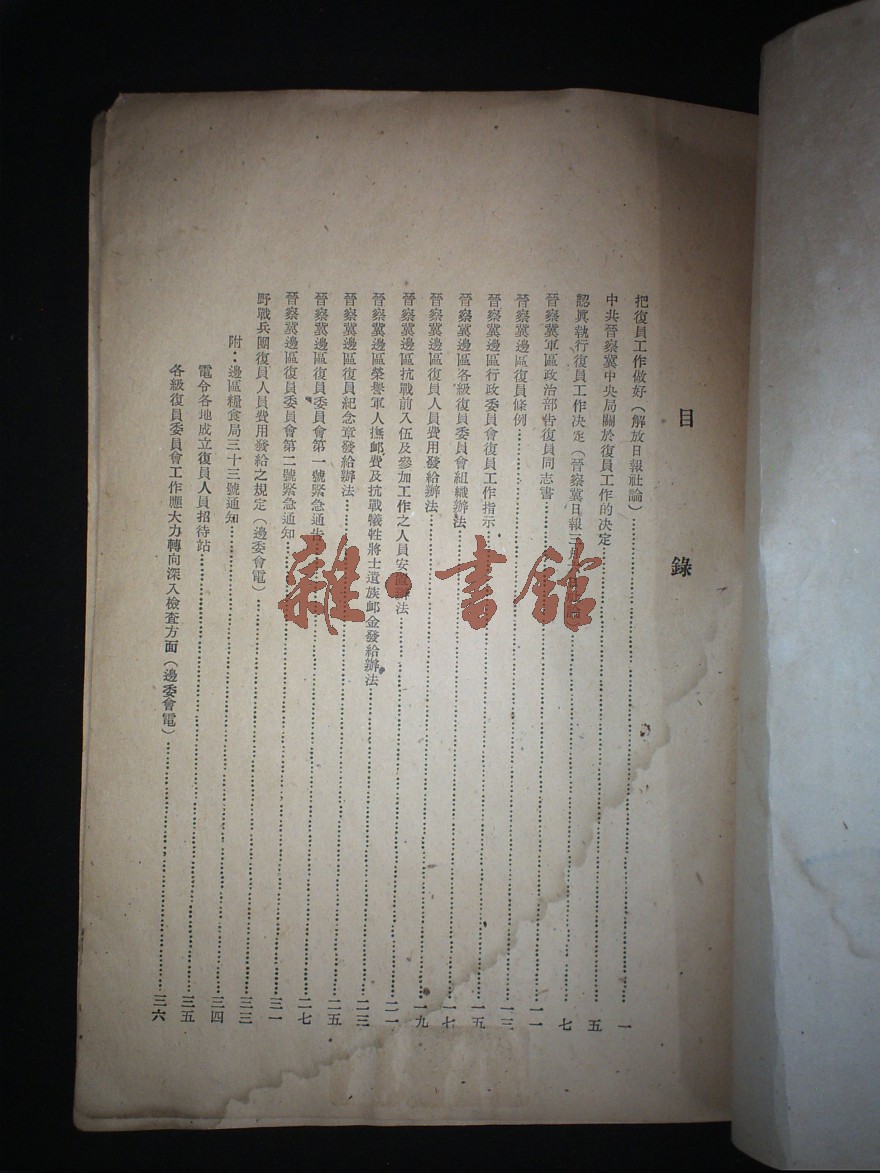 目錄
把復員工作做好(解放日報社論)……一
中共晉察冀中央局關於復員工作的决定……五
認眞執行復員工作决定(晉察冀日報三月 論……七
晉察冀軍區政治部告復員同志書……一一
晉察冀邊區復員條例……一三
晉察冀邊區行政委員會復員工作指示……一五
晉察冀邊區各級復員委員會組織辦法……一七
晉察冀邊區復員人員費用發給辦法……一九
晉察冀邊區抗戰前入伍及參加工作之人員安 辦法……二一
晉察冀邊區榮譽軍人撫邺費及抗戰犧牲將士遺族邺金發給辦法……二三
晉察冀邊區復員紀念章發給辦法……二五
晉察冀邊區復員委員會第一號緊急通告……二七
晉察冀邊區復員委員會第二號緊急通知……三一
野戰兵團復員人員費用發給之規定(邊委會電)……三三
附:邊區糧食局三十三號通知……三四
電令各地成立復員人員招待站……三五
各級復員委員會工作應大力轉向深入檢查方面(邊委會電)……三六
雜·書館